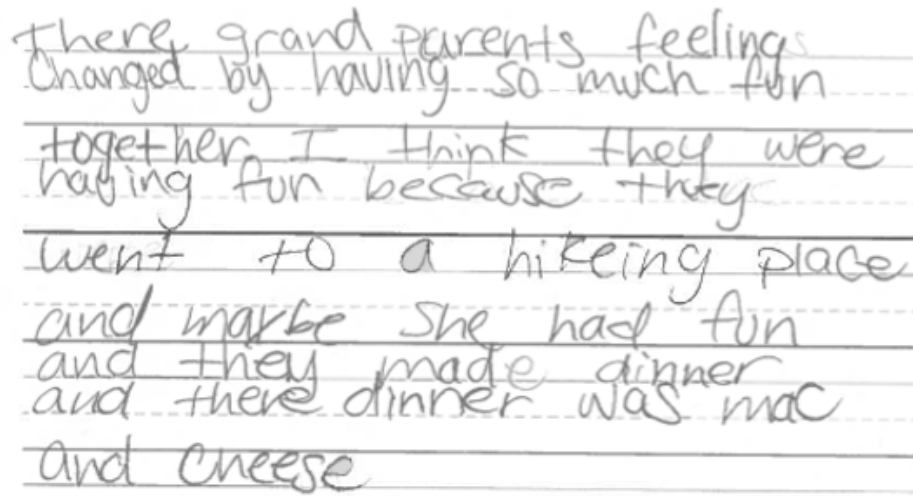 there grand parents feelings
Changed by having so much fun
together. I think they were
having fun because they
went to a hikeing place
and marbe she had fun
and they made dinner
and there dinner was mac
and cheese